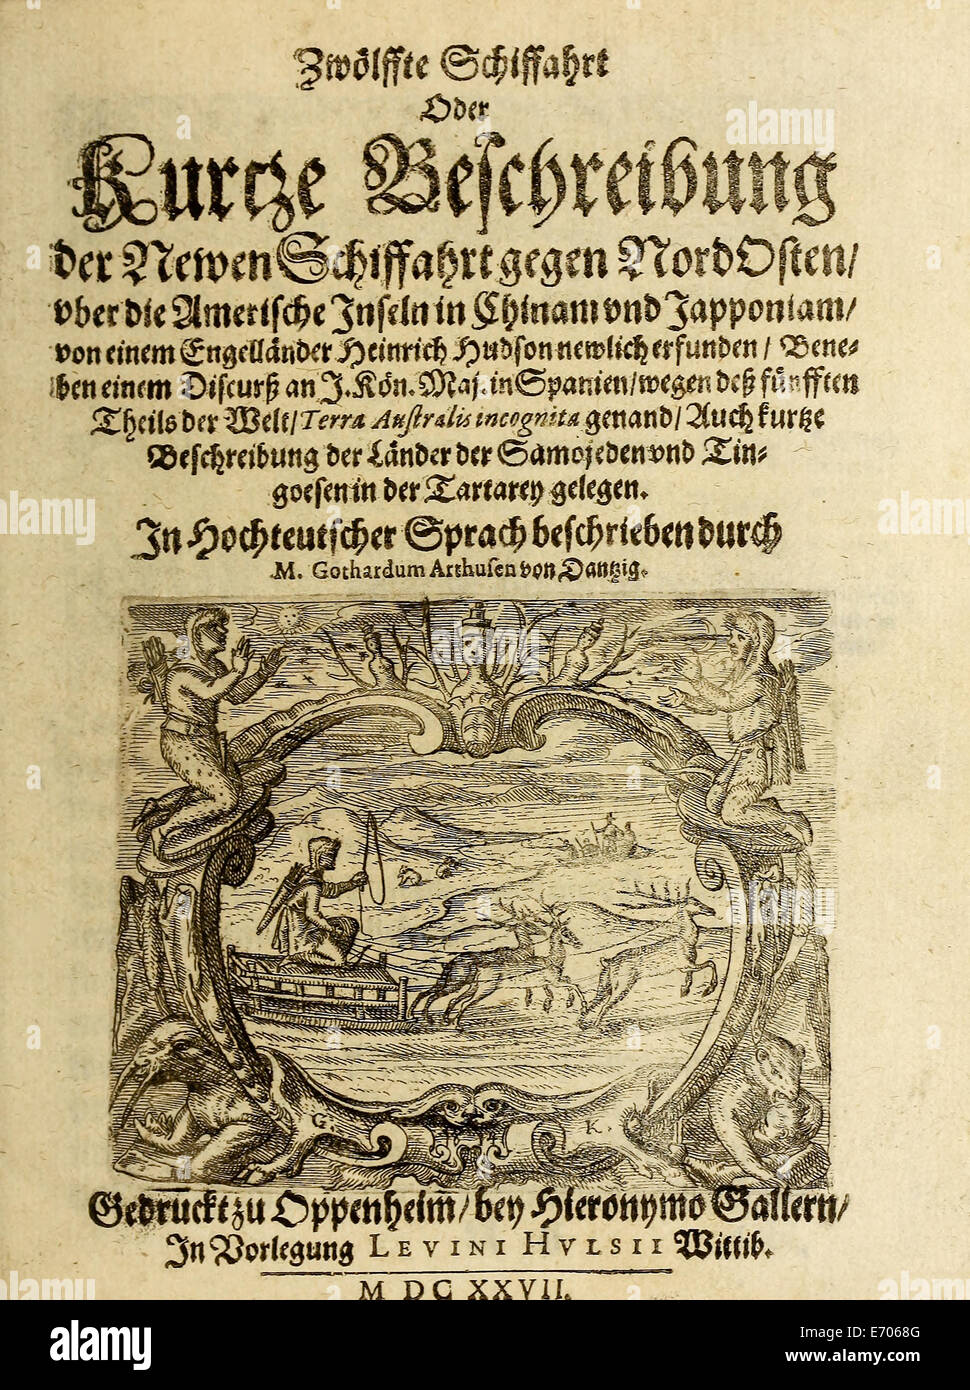 Zwölffte Schiffahrt
Oder
Kurtze Beschreibung
der Newen Schiffahrt gegen Nord Osten/
vber die Amerische Inseln in Chinam vnd Japponiam/
von einem Engelländer Heinrich Hudson newlich erfunden/ Bene-
ben einem Discurß an J. Kön. Maj. in Spanien/ wegen deß fünfften
Theils der Welt/ Terra Australis incognita genand/ Auch kurtze
Beschreibung der Länder der Samojeden vnd Tin-
goesen in der Tartarey gelegen.
In Hochteutscher Sprach beschrieben durch
M. Gothardum Arthusen von Dantzig.
G. K.
Gedruckt zu Oppenheim̄/ bey Hieronymo Gallern/
In Vorlegung LEVINI HVLSII Wittib.
M DC XXVII.
alamy
a
E7068G
www.alamy.com